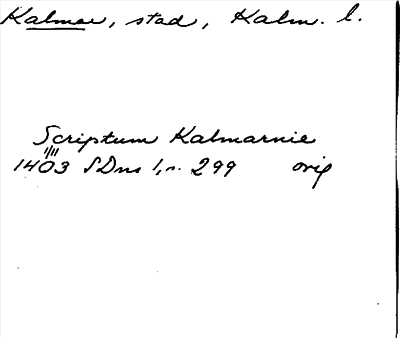 Kalmar, stad, Kalm. l.
Scriptum Kalmarnie
1403 SDns 1, n. 299 orig